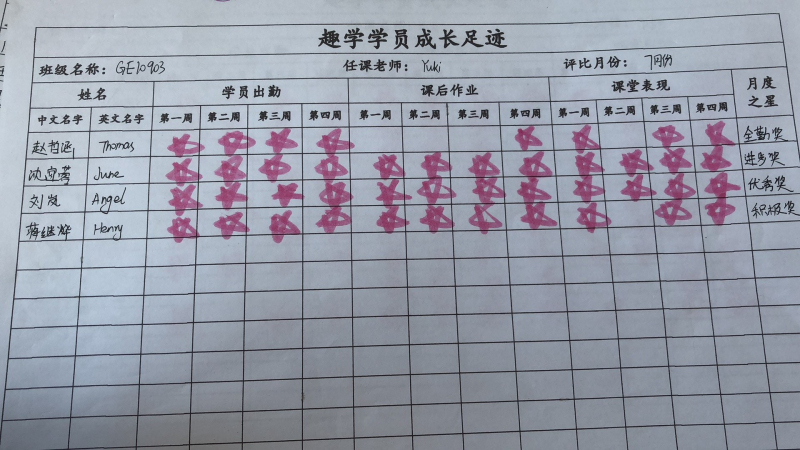 趣学学员成长足迹
班级名称：GE10903 任课老师：Yuki 评比月份：7月份
姓名 学员出勤 课后作业 课堂表现 月度之星
中文名字 英文名字 第一周 第二周 第三周 第四周 第一周 第二周 第三周 第四周 第一周 第二周 第三周 第四周
Thomas 全勤奖
June 进步奖
Angel 优秀奖
Henry 积极奖